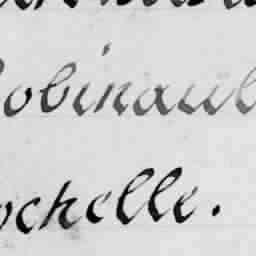 obinaul
ochelle.